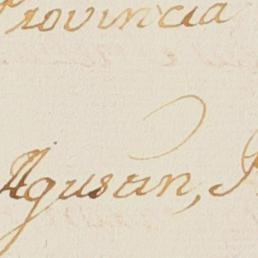 Provincia
Agustin,